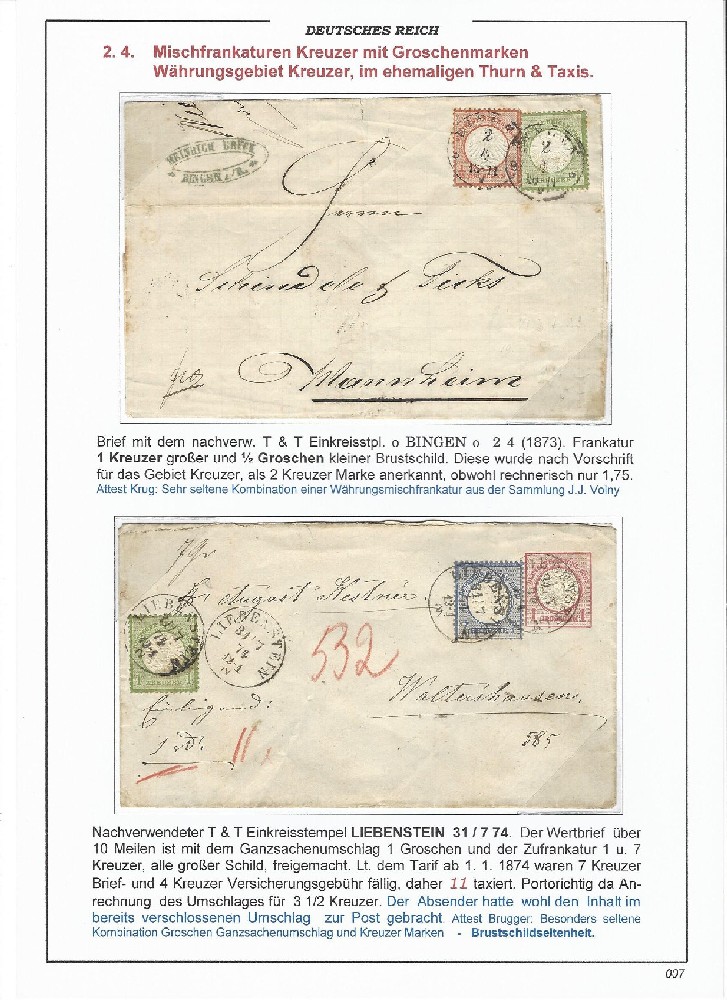 DEUTSCHES REICH
2. 4. Mischfrankaturen Kreuzer mit Groschenmarken
Währungsgebiet Kreuzer, im ehemaligen Thurn & Taxis.
HEINRICH BRÜCK
BINGEN a/R.
2
4
2
4
Herrn
Mannheim
Brief mit dem nachverw. T & T Einkreisstpl. o BINGEN o 2 4 (1873). Frankatur
1 Kreuzer großer und ½ Groschen kleiner Brustschild. Diese wurde nach Vorschrift
für das Gebiet Kreuzer, als 2 Kreuzer Marke anerkannt, obwohl rechnerisch nur 1,75.
Attest Krug: Sehr seltene Kombination einer Währungsmischfrankatur aus der Sammlung J.J. Volny
August Kestner
LIEBENSTEIN
31/7
74
532
Waltershausen.
585
11
Nachverwendeter T & T Einkreisstempel LIEBENSTEIN 31 / 7 74. Der Wertbrief über
10 Meilen ist mit dem Ganzsachenumschlag 1 Groschen und der Zufrankatur 1 u. 7
Kreuzer, alle großer Schild, freigemacht. Lt. dem Tarif ab 1. 1. 1874 waren 7 Kreuzer
Brief- und 4 Kreuzer Versicherungsgebühr fällig, daher 11 taxiert. Portorichtig da An-
rechnung des Umschlages für 3 1/2 Kreuzer. Der Absender hatte wohl den Inhalt im
bereits verschlossenen Umschlag zur Post gebracht. Attest Brugger: Besonders seltene
Kombination Groschen Ganzsachenumschlag und Kreuzer Marken - Brustschildseltenheit.
097